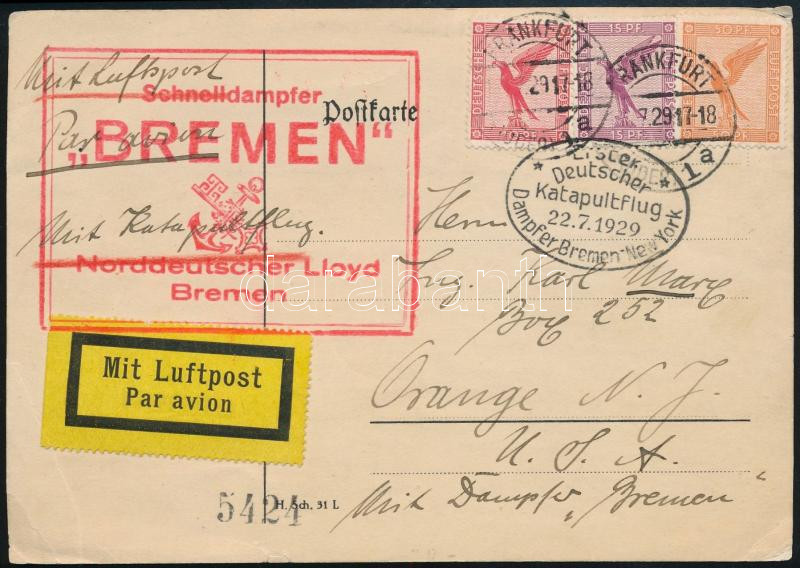 Mit Luftpost
Par avion
Mit Katapultflug.
Schnelldampfer
„BREMEN“
Norddeutscher Lloyd
Bremen
Postkarte
DEUTSCHES
15·PF. 15·PF.
50·PF.
LUFTPOST
FRANKFURT
2917-18
FRANKFURT
7.2917-18
1a
Erster
Deutscher
Katapultflug
22.7.1929
Dampfer Bremen-New York
Herrn
Ing. Karl Marx
Box 252
Orange N. J.
U. S. A.
Mit Dampfer „Bremen”
Mit Luftpost
Par avion
5424
H. Sch. 31 L
darabanth